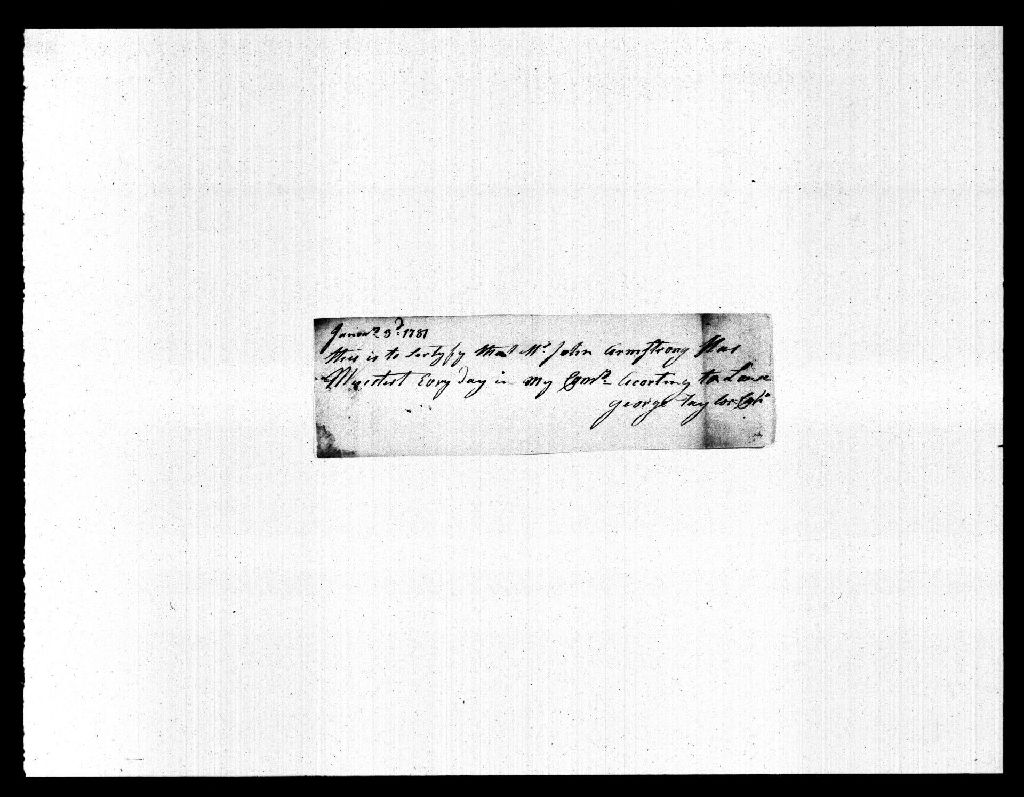 Janua 23d. 1781
this is to Sertyfy that Mr. John Armstrong Has
Mustert Evry Day in my Comp Acorting to Law
george taylor Capt